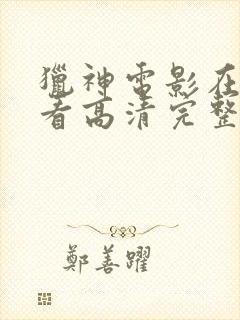 獵神電影在
看高清完整
鄭善躍